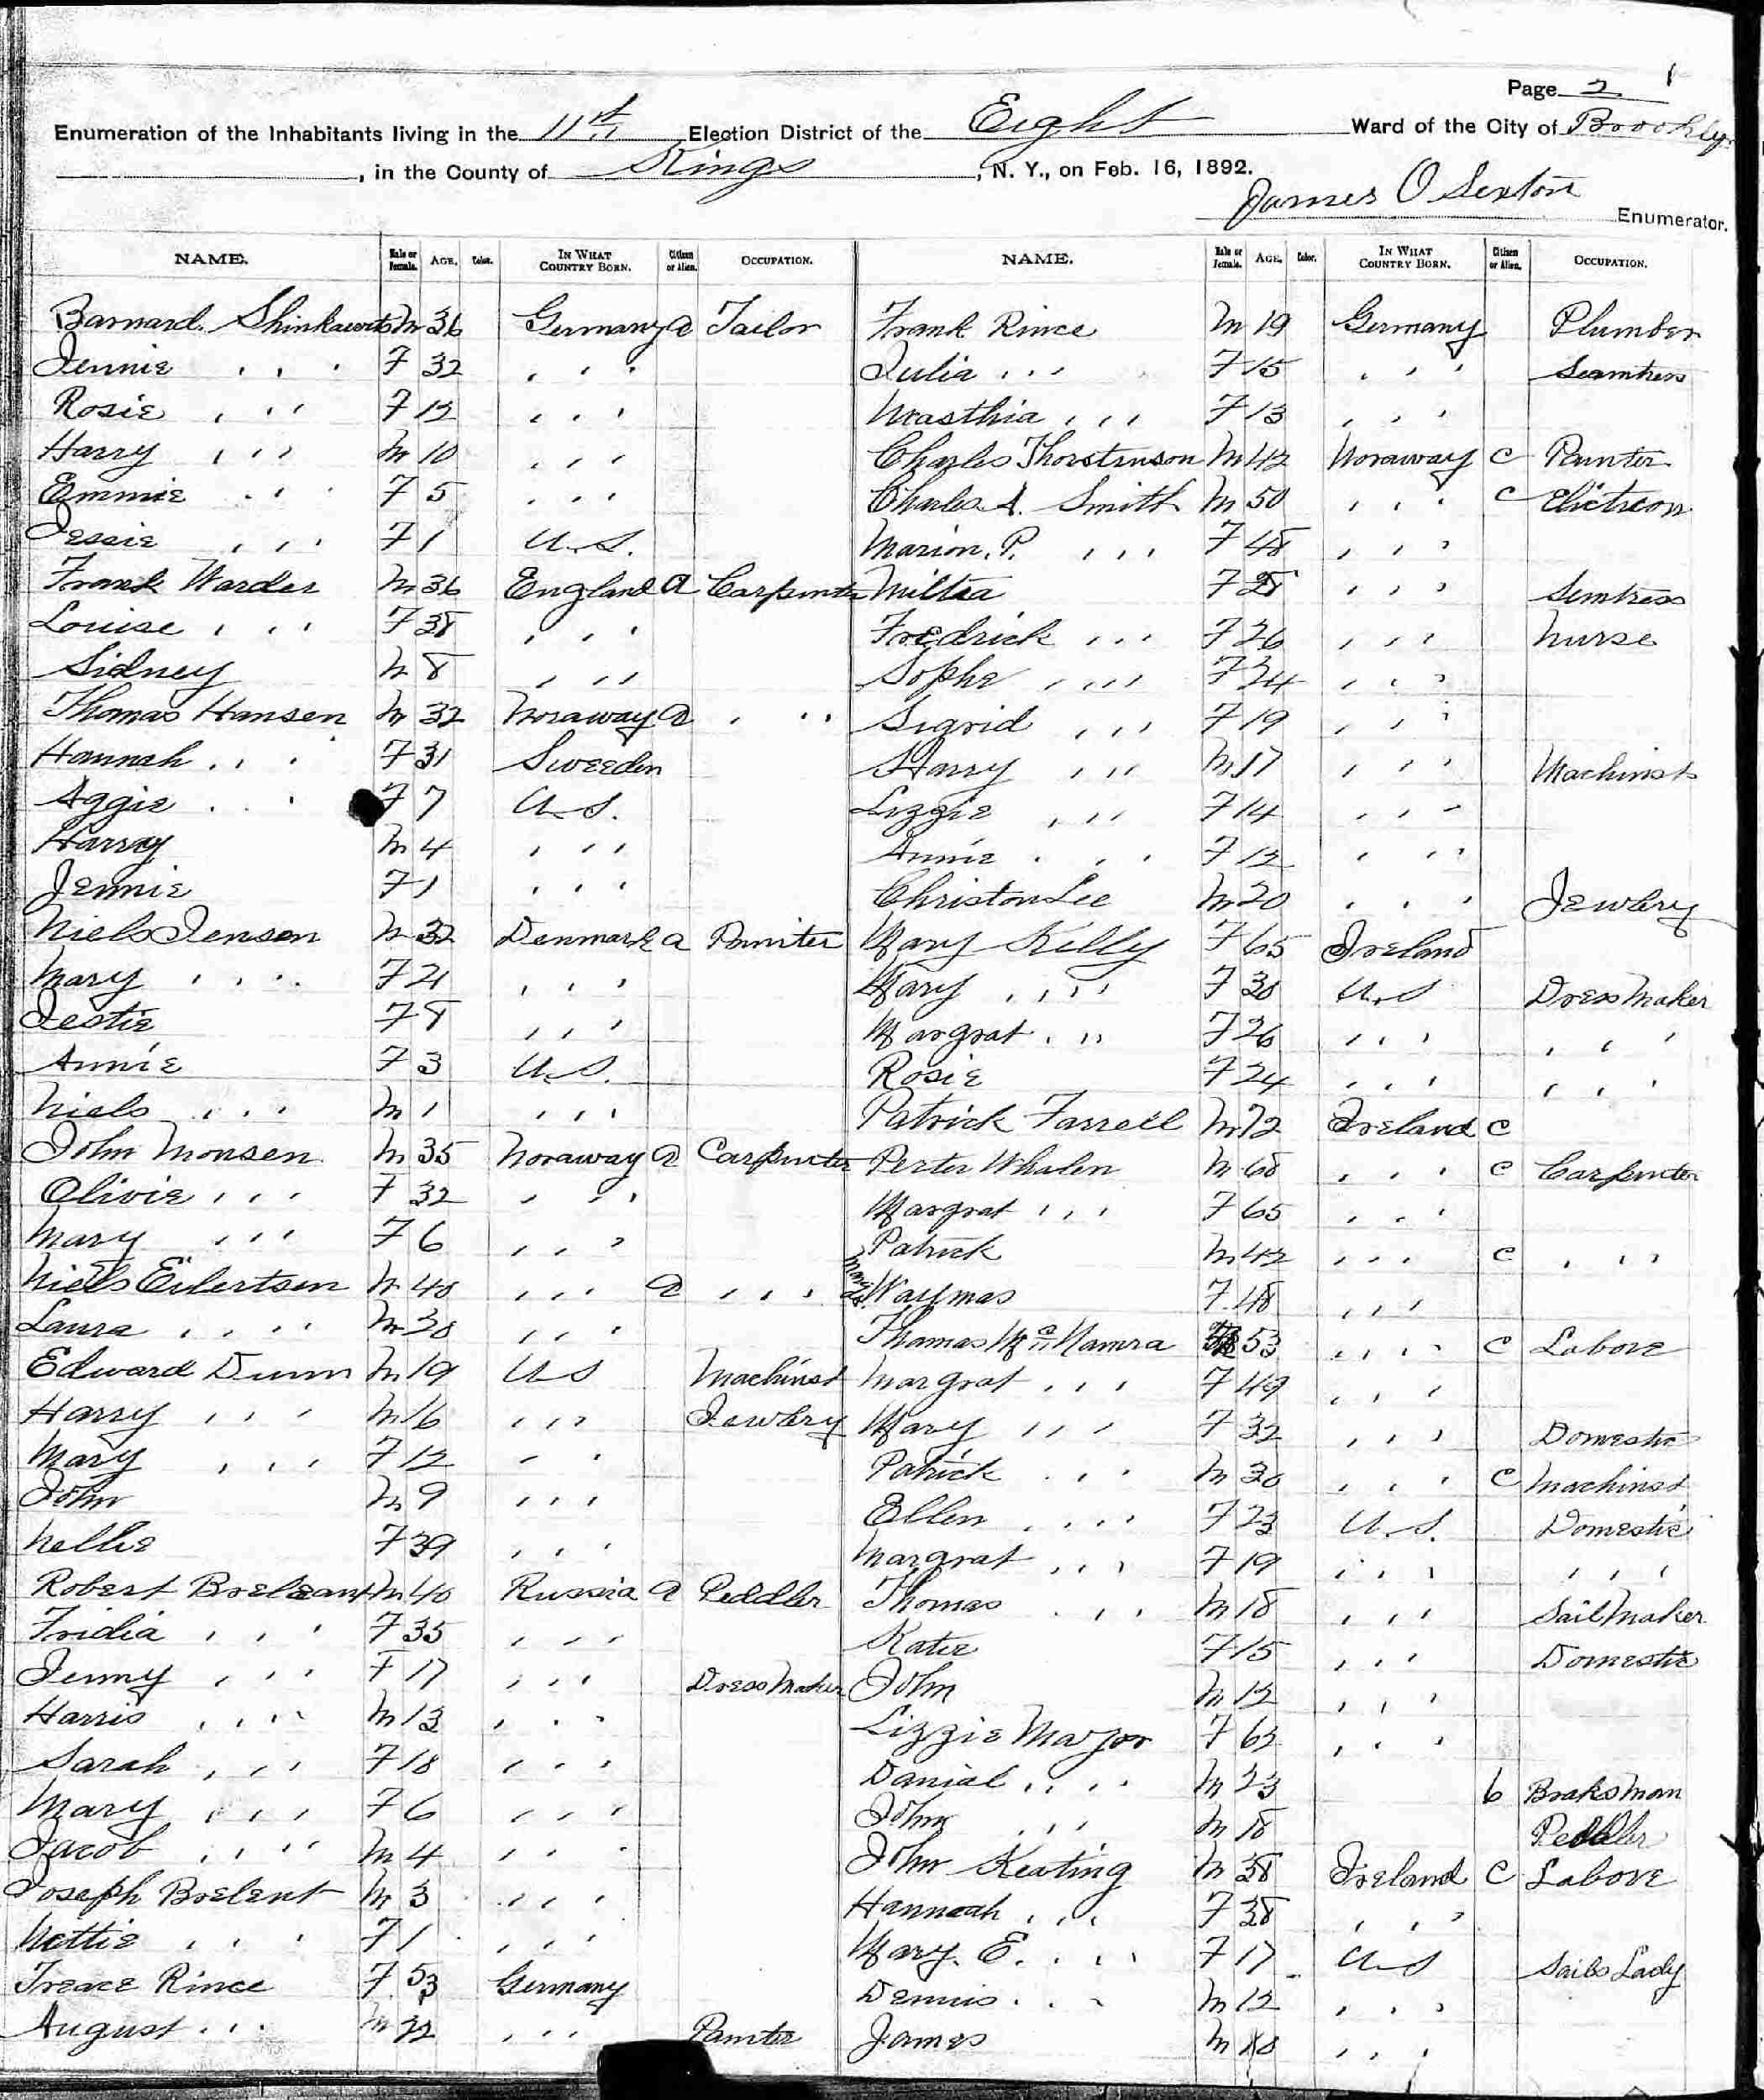 Page 2
Enumeration of the Inhabitants living in the 11th Election District of the Eight Ward of the City of Brooklyn
, in the County of Kings, N. Y., on Feb. 16, 1892.
James O Sexton Enumerator.
NAME. Male or Female. AGE. Color. IN WHAT COUNTRY BORN. Citizen or Alien. OCCUPATION.
Barnard M 36 Germany a Tailor
Jennie , , , F 32 , , ,
Rosie , , , F 12 , , ,
Harry , , , M 10 , , ,
Emmie , , , F 5 , , ,
Jessie , , , F 1 U.S.
Frank Warder M 36 England a Carpenter
Louise , , , F 38 , , ,
Sidney M 8 , , ,
Thomas Hansen M 32 Noraway a , , ,
Hannah , , , F 31 Sweeden
Aggie , , , F 7 U.S.
Harray M 4 , , ,
Jennie F 1 , , ,
Niels Jensen M 32 Denmark a Painter
Mary , , , , F 21 , , ,
Jestie F 8 , , ,
Annie F 3 U.S.
Niels , , , M 1 , , ,
John Monsen M 35 Noraway a Carpenter
Olivie , , , F 32 , , ,
Mary , , , F 6 , , ,
Niels Eilertsen M 40 , , , a , , ,
Laura , , , , M 30 , , ,
Edward Dunn M 19 U S Machinst
Harry , , , M 16 , , , Jewlery
Mary , , , F 12 , , ,
John M 9 , , ,
Nellie F 39 , , ,
Robert M 40 Russia a Peddler
Fridia , , , F 35 , , ,
Jenny , , , F 17 , , , Dress Maker
Harris , , , , M 13 , , ,
Sarah , , , F 18 , , ,
Mary , , , F 6 , , ,
Jacob , , , , M 4 , , ,
Joseph Brelent M 3 , , ,
Nettie , , , F 1 , , ,
Treace Rince F 53 Germany
August , , , M 22 , , , Painter
NAME. Male or Female. AGE. Color. IN WHAT COUNTRY BORN. Citizen or Alien. OCCUPATION.
Frank Rince M 19 Germany Plumber
Julia , , , F 15 , , , Seamtress
, , , F 13 , , ,
Charles Thorstenson M 42 Noraway C Painter
Charles A. Smith M 50 , , , C Elictricon
Marion. P. , , , F 48 , , ,
Miltea F 28 , , , Semtress
Fredrick , , , F 26 , , , Nurse
Sophe , , , , F 24 , , ,
Sigrid , , , F 19 , , ,
Harry , , , M 17 , , , Machinist
Lizzie , , , F 14 , , ,
Annie , , , F 12 , , ,
Christon Lee M 20 , , , Jewlery
Mary Kelly F 65 Ireland
Mary , , , , F 30 U.S Dress Maker
Margrat , , , F 26 , , , , , ,
Rosie F 24 , , , , , ,
Patrick Farrell M 72 Ireland C
Perter Whalen M 68 , , , C Carpenter
Margrat , , , F 65 , , ,
Patrick M 42 , , , C , , ,
F 48 , , ,
Thomas McNamra 53 , , , , C Labore
Margrat , , , F 49 , , ,
Mary , , , F 32 , , , Domestic
Patrick , , , M 30 , , , C Machinst
Ellen , , , , F 23 U.S. Domestic
Margrat , , , F 19 , , , , , ,
Thomas , , , M 18 , , , Sail Maker
Katie F 15 , , , Domestic
John M 12 , , ,
Lizzie Marjor F 62 , , ,
Danial , , , , M 23 Braks Man
John , , , M 18 Peddler
John Keating M 38 Ireland C Labore
Hannoah , , , F 38 , , ,
Mary. E. , , , , F 17 U S Sails Lady
Dennis , , , M 12 , , ,
James M , , ,